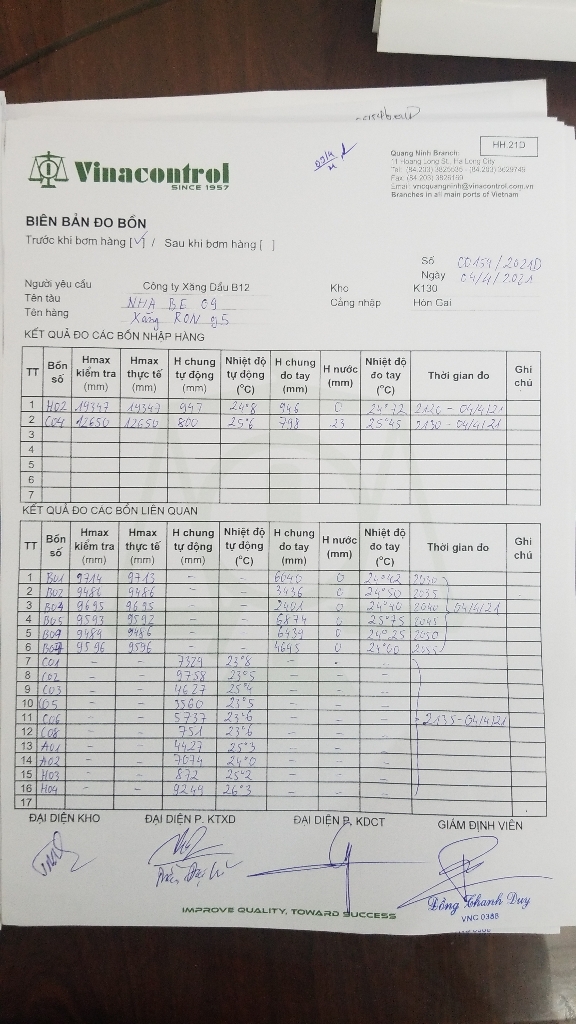 Vinacontrol
SINCE 1957
HH.21D
Quang Ninh Branch:
11 Hoang Long St., Ha Long City
Branches in all main ports of Vietnam
BIÊN BẢN ĐO BỒN
Trước khi bơm hàng [✓] / Sau khi bơm hàng [ ]
Số 00154/2021D
Ngày 04/4/2021
Người yêu cầu Công ty Xăng Dầu B12 Kho K130
Tên tàu NHA BE 09 Cảng nhập Hòn Gai
Tên hàng Xăng RON 95
KẾT QUẢ ĐO CÁC BỒN NHẬP HÀNG
TT Bồn số Hmax kiểm tra (mm) Hmax thực tế (mm) H chung tự động (mm) Nhiệt độ tự động (°C) H chung đo tay (mm) H nước (mm) Nhiệt độ đo tay (°C) Thời gian đo Ghi chú
1 H02 19347 19347 947 24°8 946 0 24°72 2120 - 04/4/21
2 C04 12650 12650 800 25°6 798 23 25°45 2130 - 04/4/21
3
4
5
6
7
KẾT QUẢ ĐO CÁC BỒN LIÊN QUAN
TT Bồn số Hmax kiểm tra (mm) Hmax thực tế (mm) H chung tự động (mm) Nhiệt độ tự động (°C) H chung đo tay (mm) H nước (mm) Nhiệt độ đo tay (°C) Thời gian đo Ghi chú
1 B01 9714 9713 - - 6040 0 24°42 2030
2 B02 9486 9486 - - 3436 0 24°50 2035
3 B04 9695 9695 - - 2401 0 24°40 2040 04/4/21
4 B05 9593 9592 - - 6874 0 25°75 2045
5 B09 9484 9486 - - 6439 0 24°25 2050
6 9596 9596 - - 4645 0 24°00 2055
7 C01 - - 7329 23°8 - -
8 C02 - - 9758 23°5 - - -
9 C03 - - 4627 25°4 - - -
10 C05 - - 3560 23°5 - - -
11 C06 - - 5737 23°6 - - - 2135-04/4/21
12 C08 - - 751 23°6 - - -
13 A01 - - 4427 25°3 - - -
14 A02 - - 7074 24°0 - - -
15 H03 - - 872 25°2 - - -
16 H04 - - 9249 26°3 - - -
17
ĐẠI DIỆN KHO ĐẠI DIỆN P. KTXD ĐẠI DIỆN P. KDCT GIÁM ĐỊNH VIÊN
Đồng Thanh Duy
VNC 0388
IMPROVE QUALITY, TOWARD SUCCESS